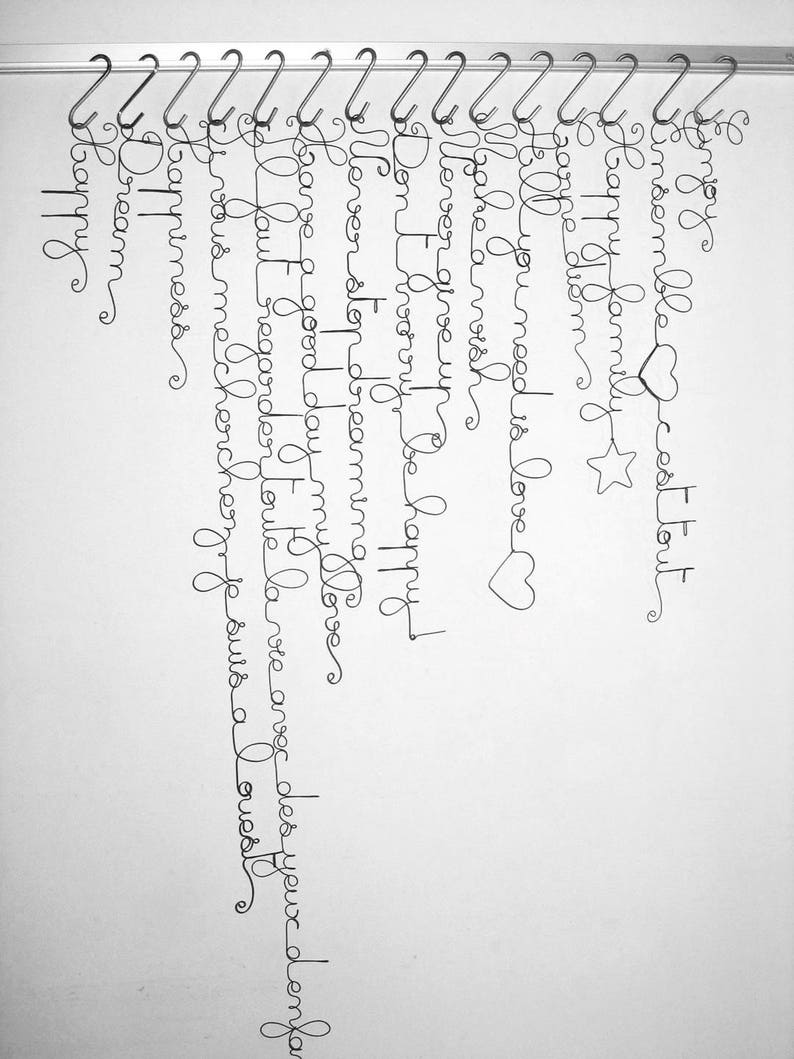 Happy
Dream
Happiness
Si vous me cherchez je suis a louest
Il faut regarder toute la vie avec des yeux denfa
Have a good day my love
Never stop dreaming
Dont worry, be happy !
Never give up
Make a wish
All you need is love
Carpe diem
Happy family
Ensemble cest tout
Enjoy